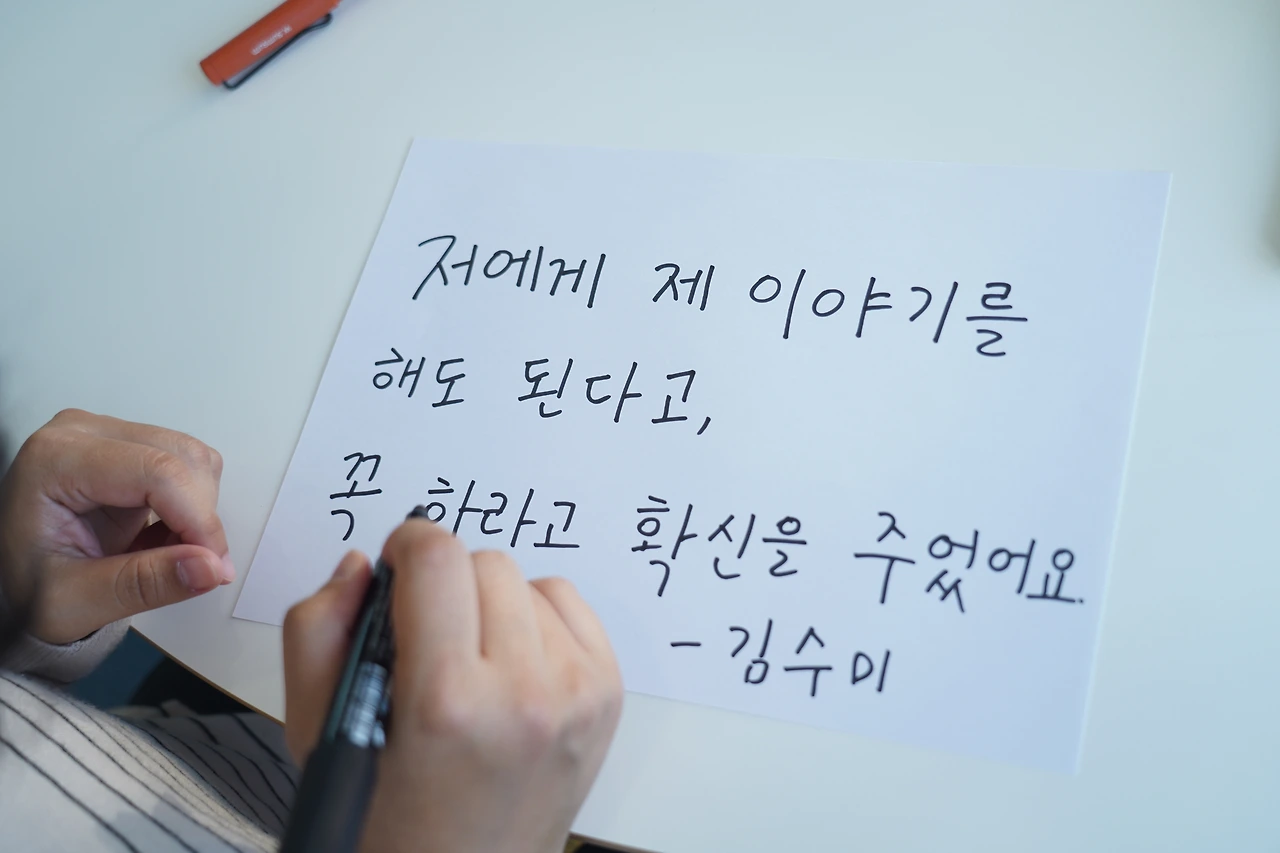 저에게 제 이야기를
해도 된다고,
꼭 하라고 확신을 주었어요.
- 김수미